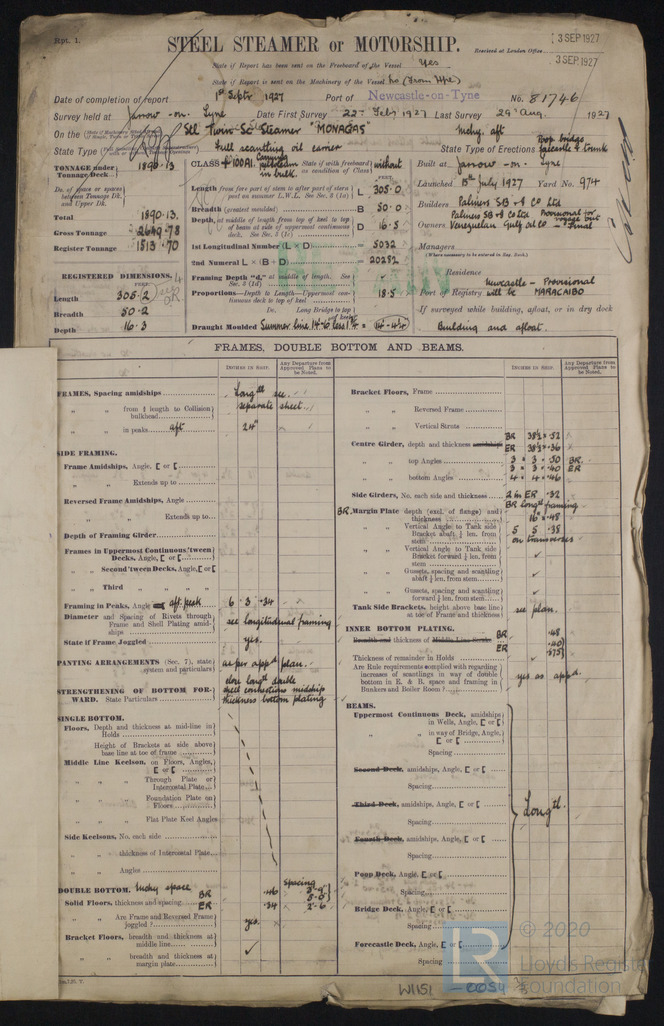 Rpt. 1.
STEEL STEAMER or MOTORSHIP.
Received at London Office
3 SEP 1927
3 SEP. 1927
State if Report has been sent on the Freeboard of the Vessel Yes
State if Report is sent on the Machinery of the Vessel No (From Hpe)
Date of completion of report 1st Septr 1927 Port of Newcastle-on-Tyne No. 81746
Survey held at Jarrow - on - Tyne Date First Survey 22nd Feby 1927 Last Survey 29th Aug. 1927
On the Stl Twin-Sc Steamer "MONAGAS" Mchy. aft
State Type Full scantling oil carrier State Type of Erections Poop bridge forecastle & trunk
TONNAGE under Tonnage Deck 1890.13
Do. of space or spaces between Tonnage Dk. and Upper Dk.
Total 1890.13.
Gross Tonnage 2649.78
Register Tonnage 1513.70
REGISTERED DIMENSIONS.
FEET.
Length 305.2
Breadth 50.2
Depth 16.3
CLASS +100A1. Carrying petroleum in bulk. State if with freeboard as condition of Class without
Length from fore part of stem to after part of stern post on summer L.W.L. See Sec. 3 (1a) L 305.0
Breadth (greatest moulded) B 50.0
Depth, at middle of length from top of keel to top of beam at side of uppermost continuous deck. See Sec. 3 (1c) D 16.5
1st Longitudinal Number L × D = 5032
2nd Numeral L × B + D = 20282
Framing Depth "d," at middle of length. See Sec. 3 (1d)
Proportions—Depth to Length—Uppermost continuous deck to top of keel 18.5
Do. Long Bridge to top of keel
Draught Moulded Summer line 14'-6" less 1 1/4 = 14'-4 3/4
Built at Jarrow - on - Tyne
Launched 15th July 1927 Yard No. 974
Builders Palmers SB & Co Ltd
Owners Palmers SB & Co Ltd Provisional for voyage out
Venezuelan Gulf Oil Co - Final
Managers
(Where necessary to be entered in Reg. Book.)
Residence
Port of Registry Newcastle - Provisional will be MARACAIBO
If surveyed while building, afloat, or in dry dock
Building and afloat.
FRAMES, DOUBLE BOTTOM AND BEAMS.
DETAILS IN SHIP.
Any Departure from Approved Plans to be Noted.
FRAMES, Spacing amidships Longtl see
" " from ⅕ length to Collision bulkhead separate sheet.
" " in peaks aft 24"
SIDE FRAMING.
Frame Amidships, Angle, [ or [
" " Extends up to
Reversed Frame Amidships, Angle
" " Extends up to
Depth of Framing Girder
Frames in Uppermost Continuous 'tween Decks, Angle, [ or [
" " Second 'tween Decks, Angle, [ or [
" " Third " " "
Framing in Peaks, Angle aft peak 6 . 3 . .34
Diameter and Spacing of Rivets through Frame and Shell Plating amidships see longitudinal framing
State if Frame Joggled yes.
PANTING ARRANGEMENTS (Sec. 7), state system and particulars as per appd plan.
STRENGTHENING OF BOTTOM FORWARD. State Particulars close longtl double shell connections midship thickness bottom plating
SINGLE BOTTOM.
Floors, Depth and thickness at mid-line in Holds
Height of Brackets at side above base line at toe of frame
Middle Line Keelson, on Floors, Angles, [ or [
" " Through Plate or Intercostal Plate
" " Foundation Plate on Floors
" " Flat Plate Keel Angles
Side Keelsons, No. each side
" " thickness of Intercostal Plate
" " Angles
DOUBLE BOTTOM. Mchy space spacing
Solid Floors, thickness and spacing BR .46 3'-9" 5'-0"
ER .34 2'-6
" " Are Frame and Reversed Frame joggled? yes
Bracket Floors, breadth and thickness at middle line ✓
" " breadth and thickness at margin plate
Bracket Floors, Frame
" " Reversed Frame
" " Vertical Struts
Centre Girder, depth and thickness amidships BR 38½ × .52
ER 38½ × .36
" " top Angles 3 × 3 × .50 BR.
3 × 3 × .40 ER
" " bottom Angles 4 × 4 × .46
Side Girders, No. each side and thickness 2 in ER .32
BR Longtl framing
BR. Margin Plate depth (excl. of flange) and thickness 16" × .48
" " Vertical Angle to Tank side Bracket abaft ¼ len. from stem 5 5 .38 on transverses
" " Vertical Angle to Tank side Bracket forward ¼ len. from stem ✓
" " Gussets, spacing and scantling abaft ¼ len. from stem ✓
" " Gussets, spacing and scantling forward ¼ len. from stem ✓
Tank Side Brackets, height above base line at toe of Frame and thickness see plan.
INNER BOTTOM PLATING.
Breadth and thickness of Middle Line Strake BR .48
ER .40
Thickness of remainder in Holds .375
Are Rule requirements complied with regarding increases of scantlings in way of double bottom in E. & B. space and framing in Bunkers and Boiler Room? yes as appd.
BEAMS.
Uppermost Continuous Deck, amidships in Wells, Angle, [ or [
" " in way of Bridge, Angle, [ or [
Spacing
Second Deck, amidships, Angle, [ or [
Spacing
Third Deck, amidships, Angle, [ or [
Longtl.
Spacing
Fourth Deck, amidships, Angle, [ or [
Spacing
Poop Deck, Angle, [ or [
Spacing
Bridge Deck, Angle, [ or [
Spacing
Forecastle Deck, Angle, [ or [
Spacing
© 2020
LR
Lloyd's Register
Foundation
W1151 - 0054